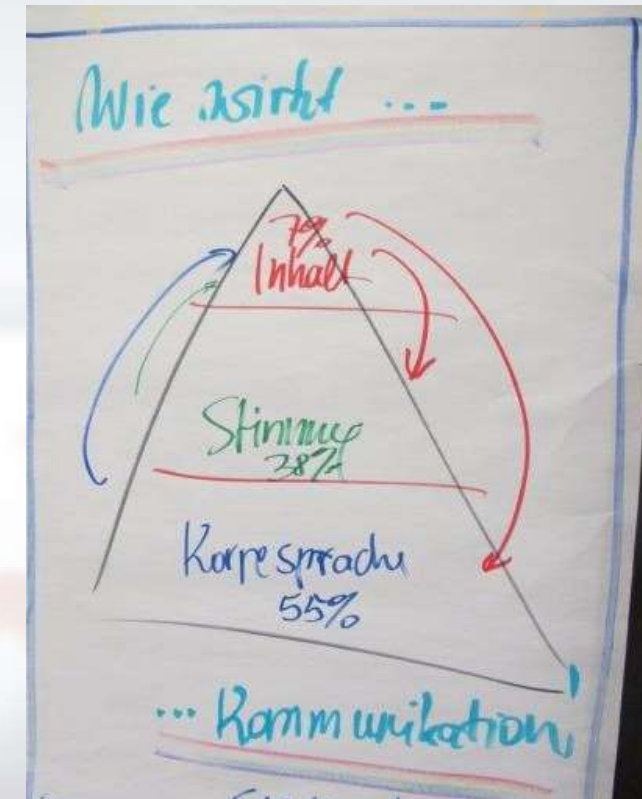 Wie wirkt ...
7%
Inhalt
Stimme
38%
Körpersprache
55%
... Kommunikation